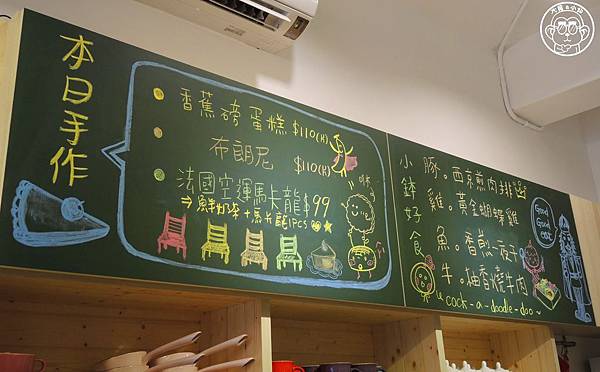 本日手作
香蕉磅蛋糕 $110(片)
布朗尼 $110(片)
法國空運馬卡龍 $99
⇒ 鮮奶茶+馬卡龍1pcs
小鉢好食
豚。西京煎肉排
雞。黃金蝴蝶雞
魚。香煎一夜干
牛。柚香燒牛肉
cock-a-doodle-doo~
Good Good eat